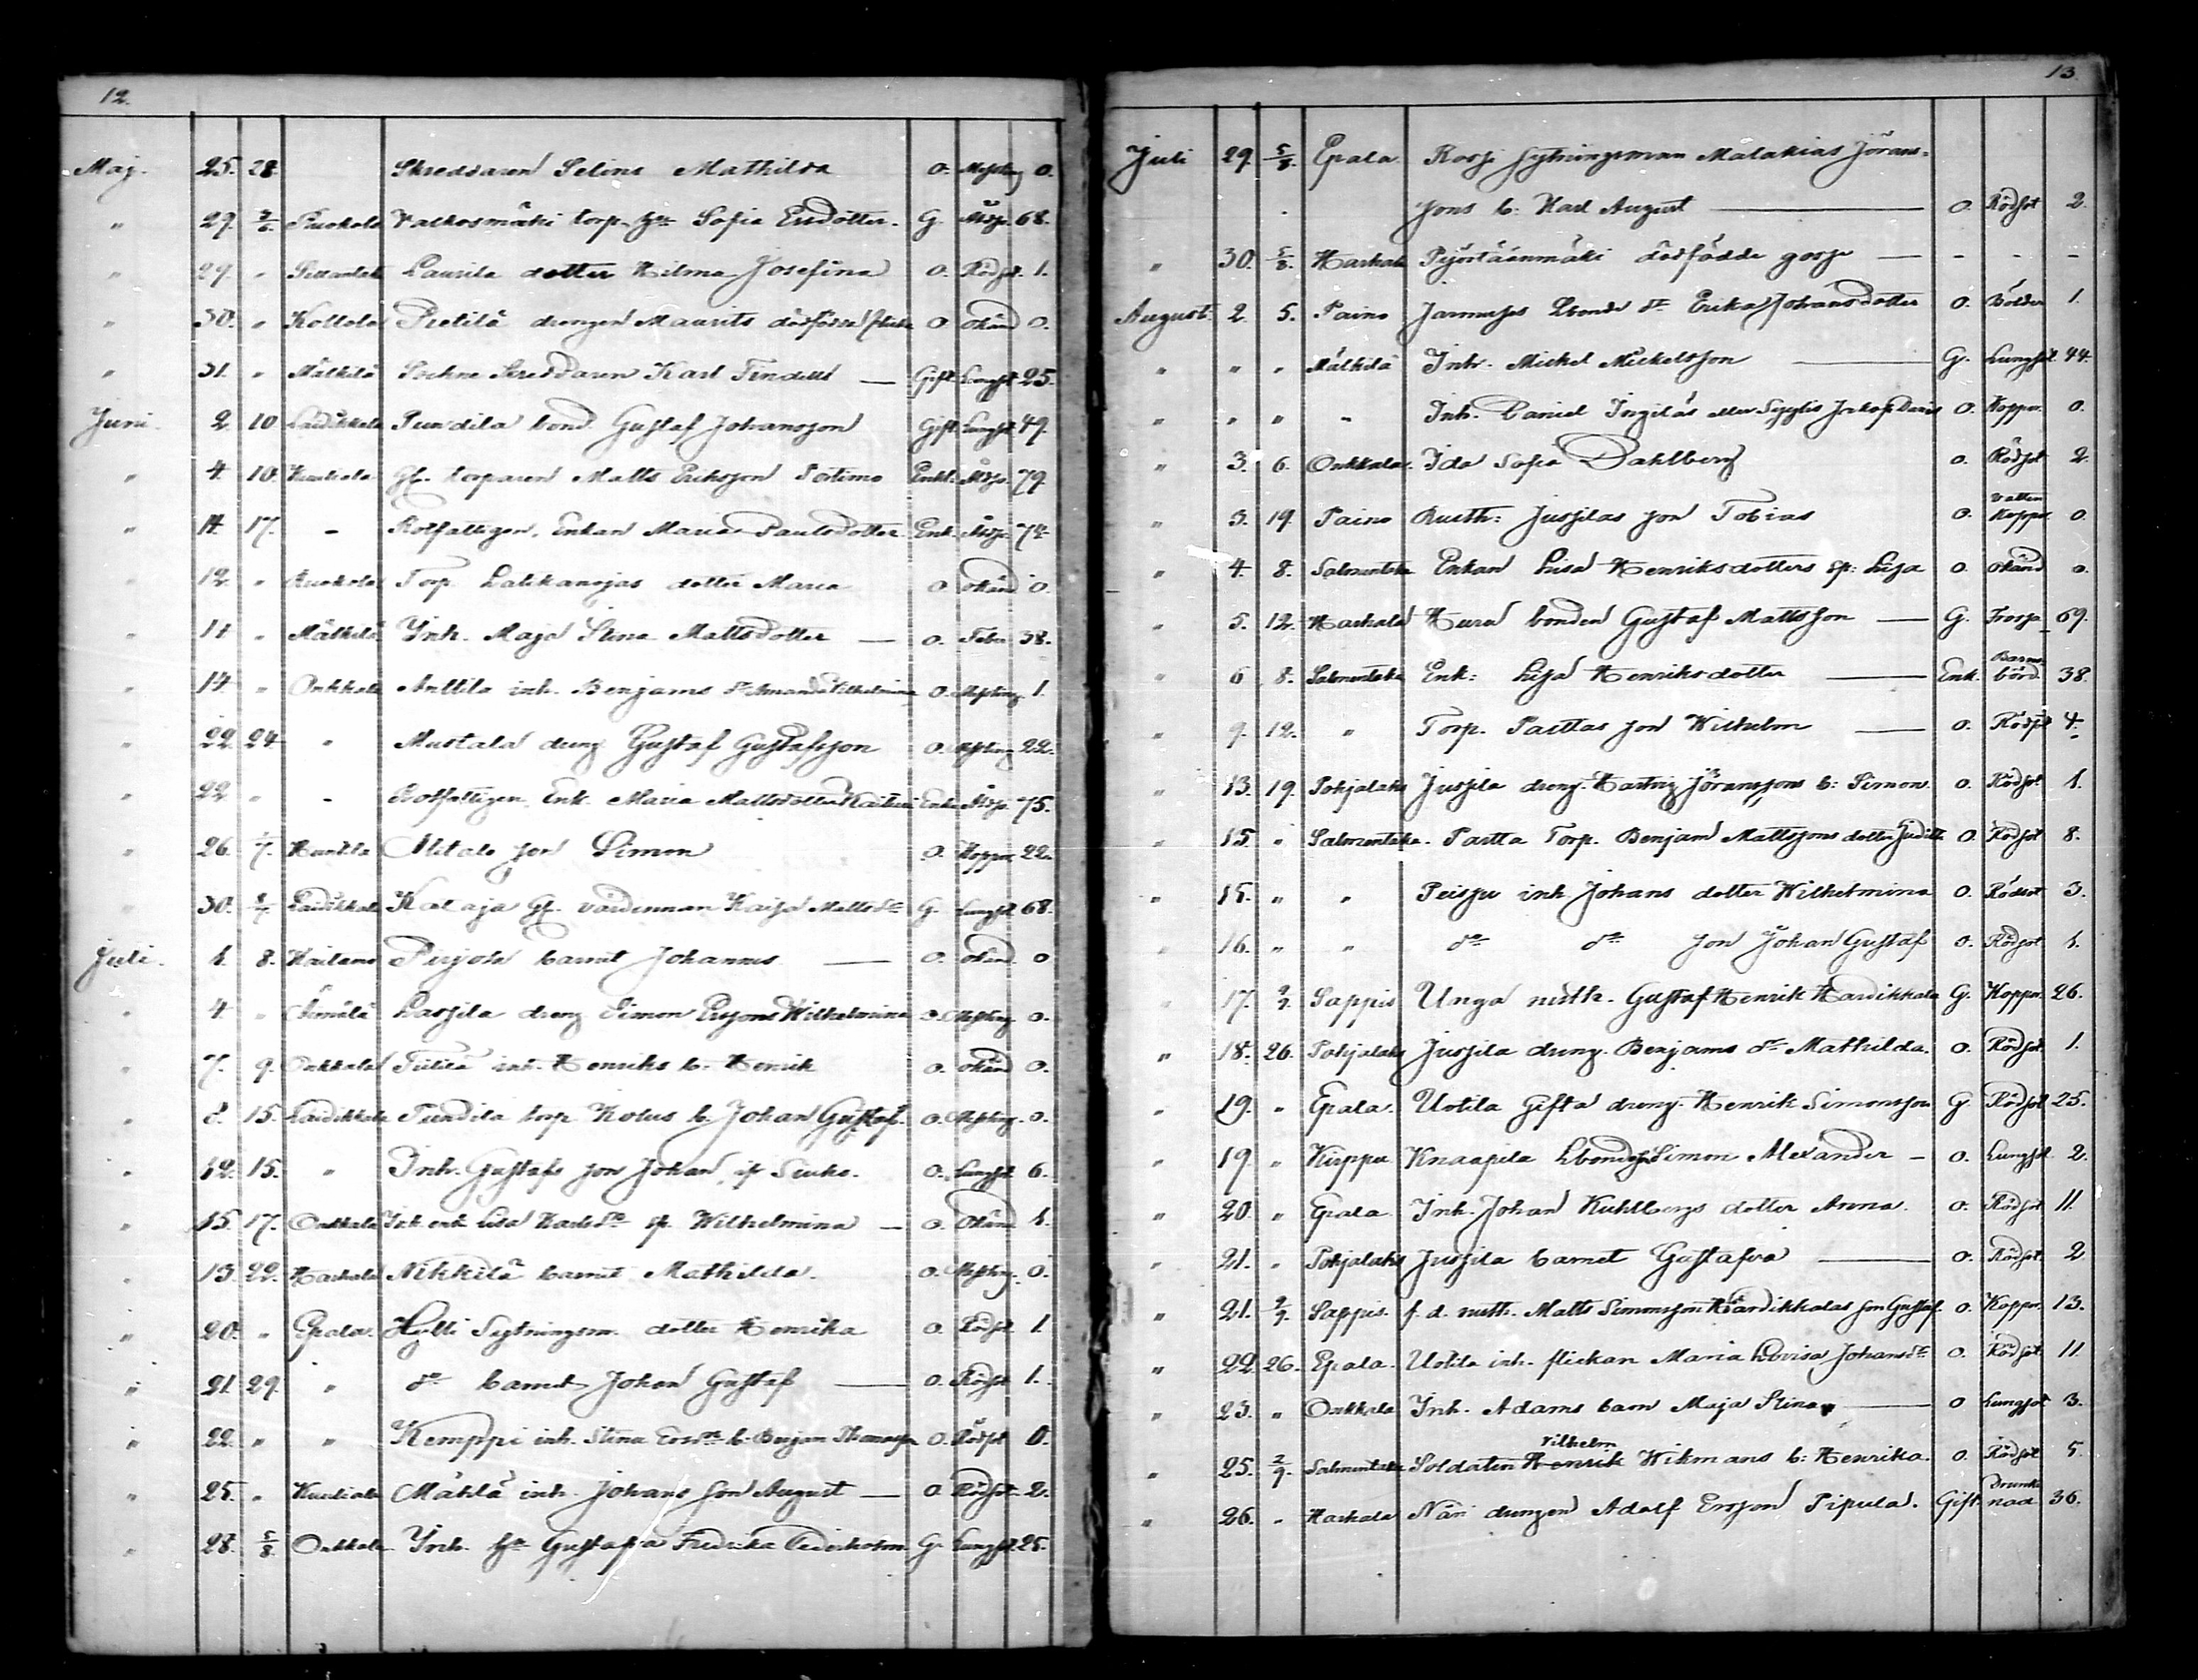 12.
Maj. 25. 28. Skreddaren Selins Mathilda 0. Messling 0.
" 29. 2/6 Puokola Valkosmäki torp. hu Sofia Ersdotter. G. Ålsp. 68.
" 29. " Laurila dotter Hilma Josefina 0. Rödsot. 1.
" 30. " Kollola Pietilä drengen Maurits dödfödda flicka 0 okänd 0.
" 31. " Mälkilä Sockne Skreddaren Karl Tindell — Gift Lungsot 25.
Juni. 2 10 Laidikkala Pundila bond. Gustaf Johansson Gift. Lungsot 49.
" 4. 10. gl. torparen Matts Eriksson Enkl. Ålsp. 79.
" 11. 17. - Rotfattigen, Enkan Maria Paulsdotter Enk. Ålsp. 74.
" 12. " Torp. dotter Maria 0. okänd 0.
" 11 " Mälkilä Inh. Maja Stina Mattsdotter — 0. Feber 38.
" 14 " Onkkala Anttila inh. Benjams dr Amanda Vilhelmina 0. Messling 1.
" 22. 24. " Mustala dreng Gustaf Gustafsson 0. Messling 22.
" 22 " - Rotfattigen, Enk. Maria Mattsdotter Enka Ålsp. 75.
" 26. 1/7. Huntila Alitalo son Simon 0. Koppor 22.
" 30. Laidikkala Kataja gl. värdinnan Kaisa Matts dr G. Lungsot 68.
Juli. 1. 8. Kailamo Pirjola barnet Johannes — 0. okänd. 0
" 4. " Lassila dreng Simon Ersons Wilhelmina 0. Messling. 0.
" 7. 9. Onkkala inh. Henriks b. Henrik 0. okänd 0.
" 8. 15. Laidikkala Pundila torp. Kolus b. Johan Gustaf. 0. Messling. 0.
" 12. 15. " Inh. Gustafs son Johan, 0. Lungsot 6.
" 15. 17. Onkkala Inh. enk. Lisa Karls dr sp. Wilhelmina — 0. Okänd 1.
" 13. 22. Harhala Nikkilä barnet Mathilda. 0. Messling. 0.
" 20. " Epala. Hylli Sytningsm. dotter Henrika 0. Rödsot 1.
" 21. 29. " do barnet Johan Gustaf — 0. Rödsot 1.
" 22. " " Kemppi inh. Stina Ersdr b. Benjam 0. Rödsot 0.
" 25. " Mähklä inh. Johans son August — 0 Rödsot. 2.
" 28. 5/8. Onkkala Inh. hu Gustafva Fredrika G. Lungsot. 25.
13.
Juli 29. 5/8. Epala Rossi sytningsman Malakias Jörans-
sons b: Karl August — 0. Rödsot 2.
" 30. 5/8. Harhala dödfödde gosse — - - -
August. 2. 5. Paino Lbonde dr Erika Johansdotter 0. Bölder 1.
" " " Mälkilä Inh. Michel Mickelsson — G. Lungsot 44.
" " " - Inh. Daniel 0. Koppor. 0.
" 3. 6. Onkkala. Ida Sofia Dahlberg 0. Rödsot 2.
" 3. 19. Paino Rusth: Jussilas son Tobias 0. Vatten Koppor 0.
" 4. 8. Salmentaka Enkan Lisa Henriksdotters sp: Lisa 0. okänd 0.
" 5. 12. Harhala Hura bonden Gustaf Mattsson — G. Frossa 69.
" 6 8. Salmentaka Enk: Lisa Henriksdotter — Enk. Barns börd. 38.
" 9. 12. " Torp. Parttas son Wilhelm — 0. Rödsot 4.
" 13. 19. Pohjalahti Jussila dreng. Hartvig Jöranssons b: Simon 0. Rödsot 1.
" 15. " Salmentaka. Partta Torp. Benjam Mattssons dotter Judith 0. Rödsot 8.
" 15. " " Peispu inh. Johans dotter Wilhelmina 0. Rödsot 3.
" 16. " " do do son Johan Gustaf 0. Rödsot 1.
" 17. 2/9. Sappis Unga rusth. Gustaf Henrik Haardikkala G. Koppor. 26.
" 18. 26. Pohjalahti Jussila dreng. Benjams dr Mathilda. 0. Rödsot. 1.
" 19. " Epala. Uotila Gifta dreng. Henrik Simonsson G. Rödsot 25.
" 19. " Kirppu Knaapila Simon Alexander - 0. Lungsot. 2.
" 20. " Epala Inh. Johan Kuhlbergs dotter Anna. 0. Rödsot 11.
" 21. " Pohjalahti Jussila barnet Gustafva — 0. Rödsot 2
" 21. 2/9. Sappis. f. d. rusth. Matts Simonsson Haardikkalas son Gustaf. 0. Koppor. 13.
" 22. 26. Epala. Uotila inh. flickan Maria Lovisa Johans dr 0. Rödsot 11.
" 23. " Onkkala Inh. Adams barn Maja Stina — 0 Lungsot 3.
" 25. 2/9. Salmentaka Soldaten Henrik Vilhelm Wikmans b: Henrika. 0. Rödsot 5.
" 26. " Harhala Näri drengen Adolf Ersson Pipula. Gift. Drunk nad 36.